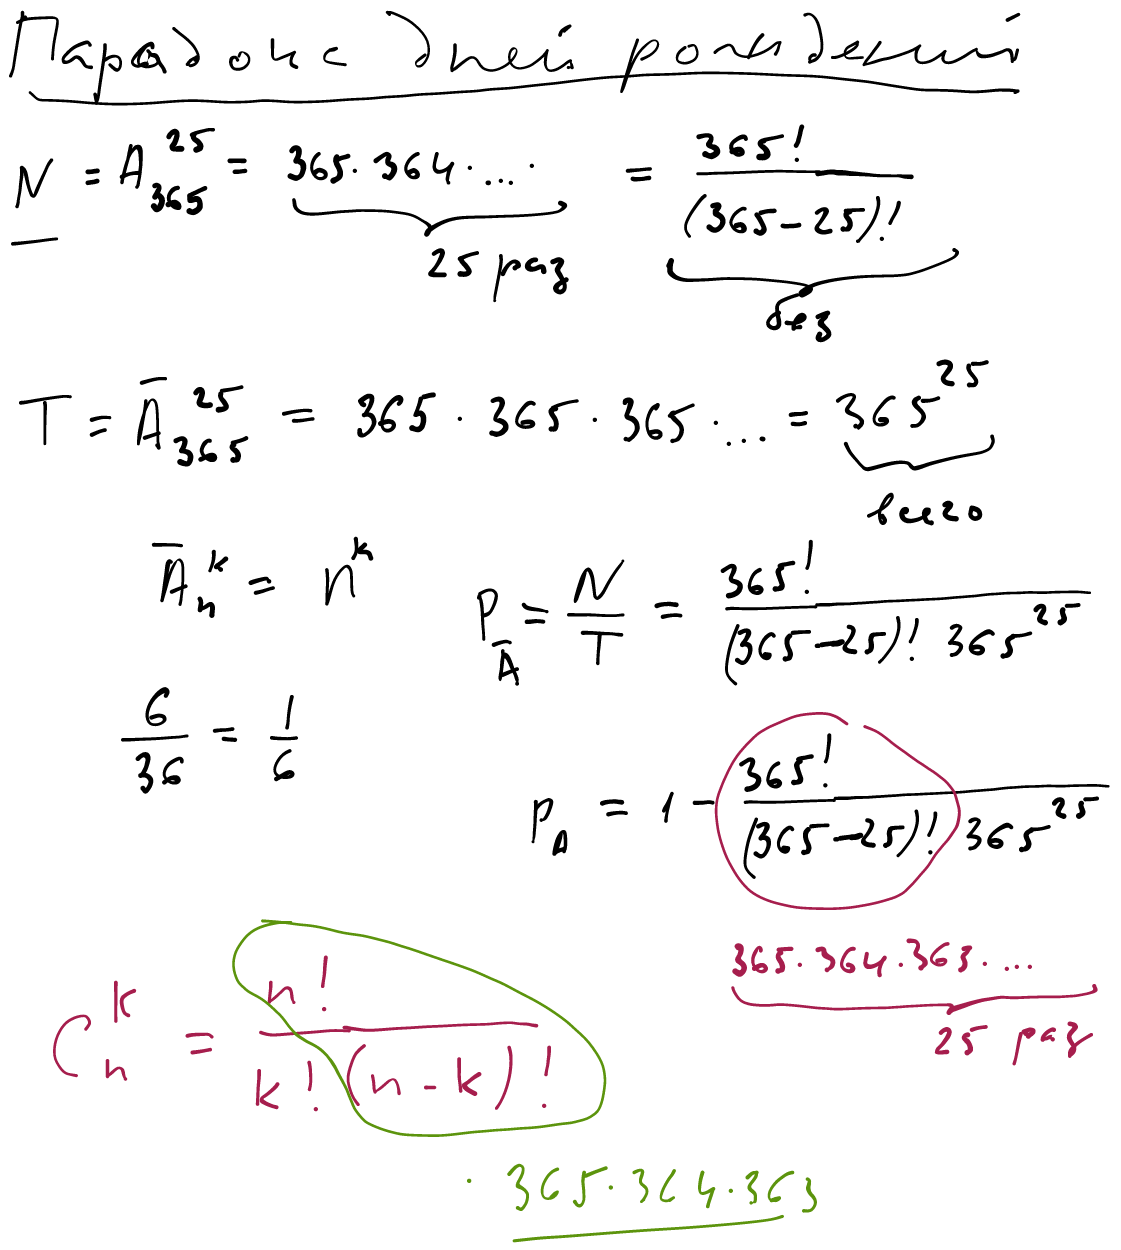 Парадокс дней рождений
N = A₃₆₅²⁵ = 365·364·... = 365! / (365-25)!
25 раз
без
T = A̅₃₆₅²⁵ = 365 · 365 · 365 · ... = 365²⁵
всего
A̅ₙᵏ = nᵏ
P_A̅ = N/T = 365! / (365-25)! 365²⁵
6/36 = 1/6
P_A = 1 - 365! / (365-25)! 365²⁵
365·364·363·...
25 раз
Cₙᵏ = n! / k!(n-k)!
· 365·364·363